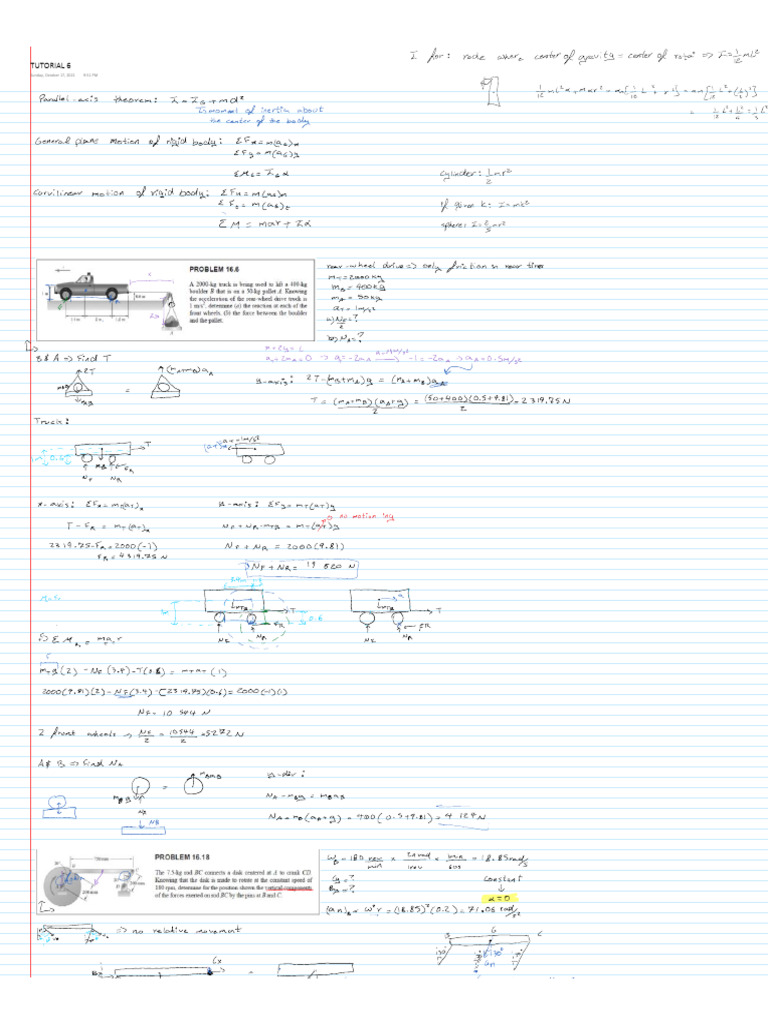 I for: rode where center of gravity = center of rota° => I = 1/12 mL²
TUTORIAL 6
Parallel-axis theorem: I = I_G + md²
I_G moment of inertia about
the center of the body
General plane motion of rigid body: ΣFx = m(aG)x
ΣFy = m(aG)y
ΣMG = IG α
cylinder: 1/2 mr²
Curvilinear motion of rigid body: ΣFn = m(aG)n
ΣFt = m(aG)t
If given k: I = mk²
ΣM = mar + Iα
sphere: I = 2/5 mr²
PROBLEM 16.6
A 2000-kg truck is being used to lift a 400-kg
boulder B that is on a 50-kg pallet A. Knowing
the acceleration of the rear-wheel drive truck is
1 m/s², determine (a) the reaction at each of the
front wheels, (b) the force between the boulder
and the pallet.
rear-wheel drive => only friction on rear tires
mT = 2000 kg
mB = 400 kg
mA = 50 kg
aT = 1 m/s²
a) NF/2 = ?
b) NA = ?
B & A => Find T
y-axis: 2T - (mB + mA)g = (mA + mB)aA
T = (mA + mB)(aA + g)/2 = (50+400)(0.5+9.81)/2 = 2319.75 N
Truck:
x-axis: ΣFx = mT(aT)x
y-axis: ΣFy = mT(aT)y
no motion in y
T - FR = mT(aT)x
NF + NR - mTg = mT(aT)y
2319.75 - FR = 2000(-1)
FR = 4319.75 N
NF + NR = 2000(9.81)
NF + NR = 19 620 N
mTg(2) - NF(3.4) - T(0.6) = mTaT(1)
2000(9.81)(2) - NF(3.4) - (2319.75)(0.6) = 2000(-1)(1)
NF = 10 544 N
2 front wheels → NF/2 = 10544/2 = 5272 N
A & B => find NA
y-dir:
NA - mBg = mBaB
NA = mB(aB + g) = 400(0.5+9.81) = 4 124 N
PROBLEM 16.18
The 7.5-kg rod BC connects a disk centered at A to crank CD.
Knowing that the disk is made to rotate at the constant speed of
180 rpm, determine for the position shown the vertical components
of the forces exerted on rod BC by the pins at B and C.
WB = 180 rev/min × 2π rad/1 rev × min/60s = 18.85 rad/s
Cy = ?
By = ?
constant
α = 0
(an)B = w²r = (18.85)²(0.2) = 71.06 rad/s²
=> no relative movement